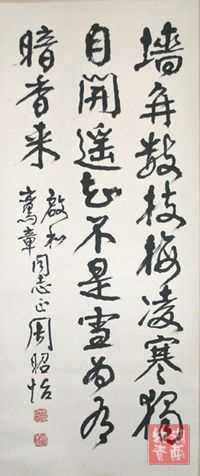 墙角数枝梅凌寒独
自開遥知不是雪为有
暗香来
啟和
寓章同志正周昭怡